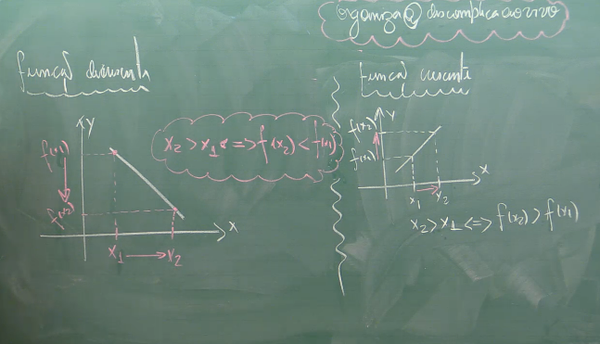 organiza@descomplicaaovivo
função decrescente
y
f(x1)
f(x2)
x
x1 → x2
x2 > x1 <=> f(x2) < f(x1)
função crescente
y
f(x2)
f(x1)
x
x1 x2
x2 > x1 <=> f(x2) > f(x1)